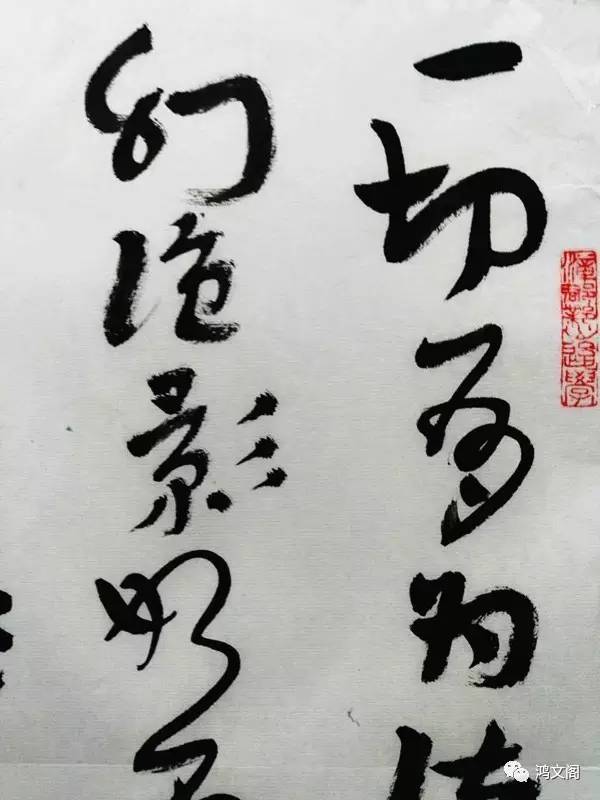 一切有为法
幻泡影如
鸿文阁